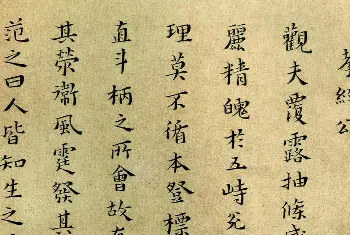 經公
觀夫覆露抽條
麗精魄於五峙
理莫不循本登標
直斗柄之所會故
其滎衛風霆發其
范之曰人皆知生之